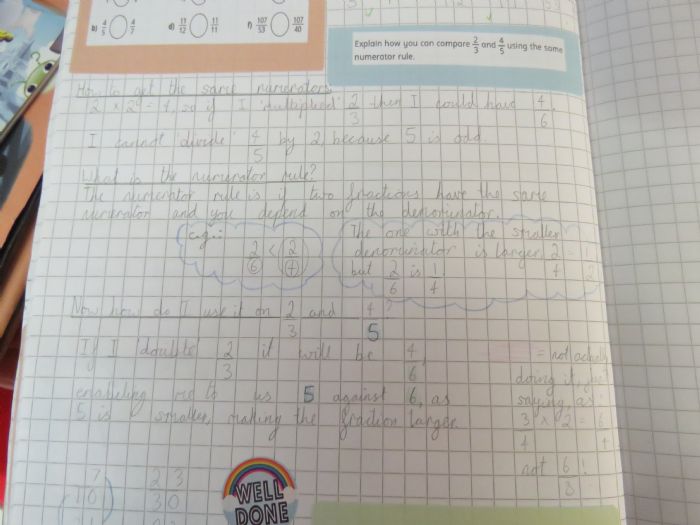 b) 4/5 4/7 d) 11/12 11/11 f) 107/53 107/40
Explain how you can compare 2/3 and 4/5 using the same
numerator rule.
How to get the same numerators:
2 × 2 = 4, so if I 'multiplied' 2/3 then I could have 4/6.
I cannot 'divide' 4/5 by 2, because 5 is odd.
What is the numerator rule?
The numerator rule is if two fractions have the same
numerator and you depend on the denominator.
e.g.:
2/6 < 2/4
The one with the smaller
denominator is larger. 2/4 = 1/2
but 2/6 is
Now how do I use it on 2/3 and 4/5?
If I 'double' 2/3 it will be 4/6,
enabeling me to us 5 against 6, as
5 is smaller, making the fraction larger.
= not
doing it, just
saying as:
3/4 × 2 = 6/4
not 6/8!
7/10 23/30
WELL
DONE